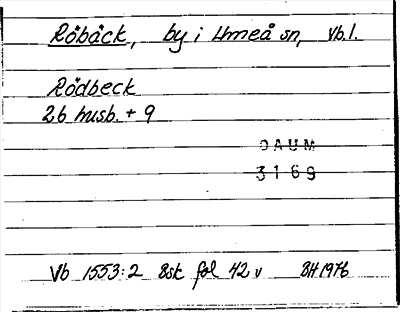 Röbäck, by i Umeå sn, Vb.l.
Rödbeck
26 husb. + 9
DAUM
3169
Vb 1553:2 Bsk fol 42 v BH 1976